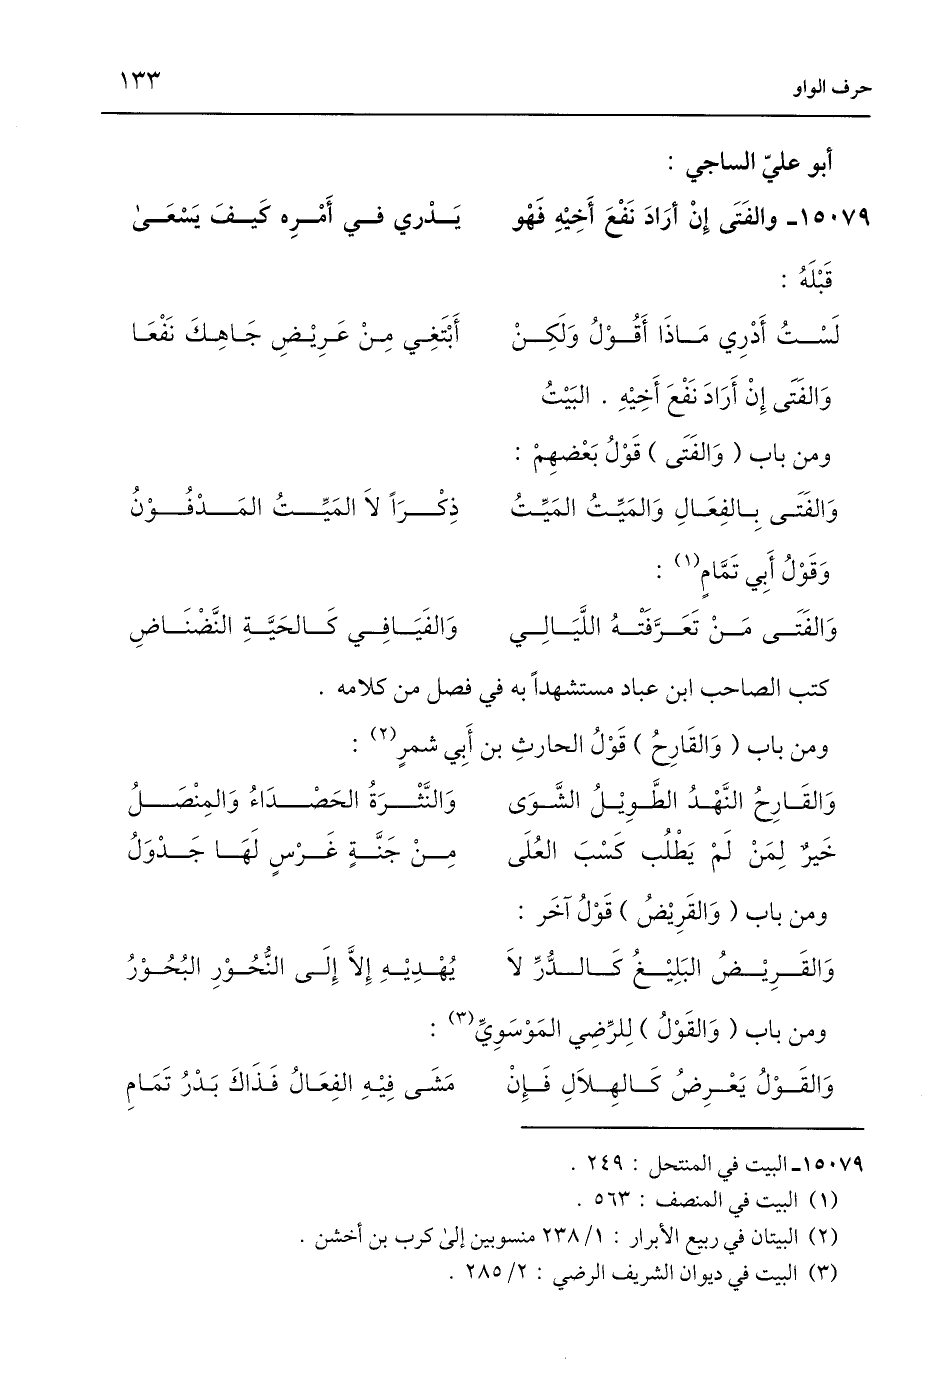 حرف الواو ١٣٣
أبو عليّ الساجي :
١٥٠٧٩ـ والفَتَى إنْ أرَادَ نَفْعَ أَخِيْهِ فَهْو يَـدْري فـي أَمْـرِه كَيـفَ يَسْعَـىٰ
قَبْلَهُ :
لَسْـتُ أَدْرِي مَـاذَا أَقُـوْلُ وَلَكِـنْ أَبْتَغِـي مِـنْ عَـرِيْـضِ جَـاهِـكَ نَفْعَـا
وَالفَتَى إِنْ أَرَادَ نَفْعَ أَخِيْهِ . البَيْتُ
ومن باب ( وَالفَتَى ) قَوْلُ بَعْضهِمْ :
وَالفَتَـى بِـالفِعَـالِ وَالمَيِّـتُ المَيِّـتُ ذِكْـرَاً لاَ المَيِّـتُ المَـدْفُـوْنُ
وَقَوْلُ أَبِي تَمَّامٍ(١) :
وَالفَتَـى مَـنْ تَعَـرَّفَتْـهُ اللَّيَـالِـي وَالفَيَـافِـي كَـالحَيَّـةِ النَّضْنَـاضِ
كتب الصاحب ابن عباد مستشهداً به في فصل من كلامه .
ومن باب ( وَالقَارِحُ ) قَوْلُ الحارثِ بن أَبي شمرٍ(٢) :
وَالقَـارِحُ النَّهْـدُ الطَّوِيْـلُ الشَّوَى وَالنَّثْـرَةُ الحَصْـدَاءُ وَالمِنْصَـلُ
خَيرٌ لِمَنْ لَمْ يَطْلُب كَسْبَ العُلَى مِـنْ جَنَّـةٍ غَـرْسٍ لَهَـا جَـدْوَلُ
ومن باب ( وَالقَرِيْضُ ) قَوْلُ آخَر :
وَالقَـرِيْـضُ البَلِيْـغُ كَـالـدُّرِّ لاَ يُهْـدِيْـهِ إِلاَّ إِلَـى النُّحُـوْرِ البُحُـوْرُ
ومن باب ( وَالقَوْلُ ) لِلرِّضِي المَوْسَوِيِّ(٣) :
وَالقَـوْلُ يَعْـرِضُ كَـالهِـلاَلِ فَـإِنْ مَشَـى فِيْهِ الفِعَـالُ فَـذَاكَ بَـدْرُ تَمَـامِ
١٥٠٧٩ـ البيت في المنتحل : ٢٤٩ .
(١) البيت في المنصف : ٥٦٣ .
(٢) البيتان في ربيع الأبرار : ١/ ٢٣٨ منسوبين إلىٰ كرب بن أخشن .
(٣) البيت في ديوان الشريف الرضي : ٢/ ٢٨٥ .